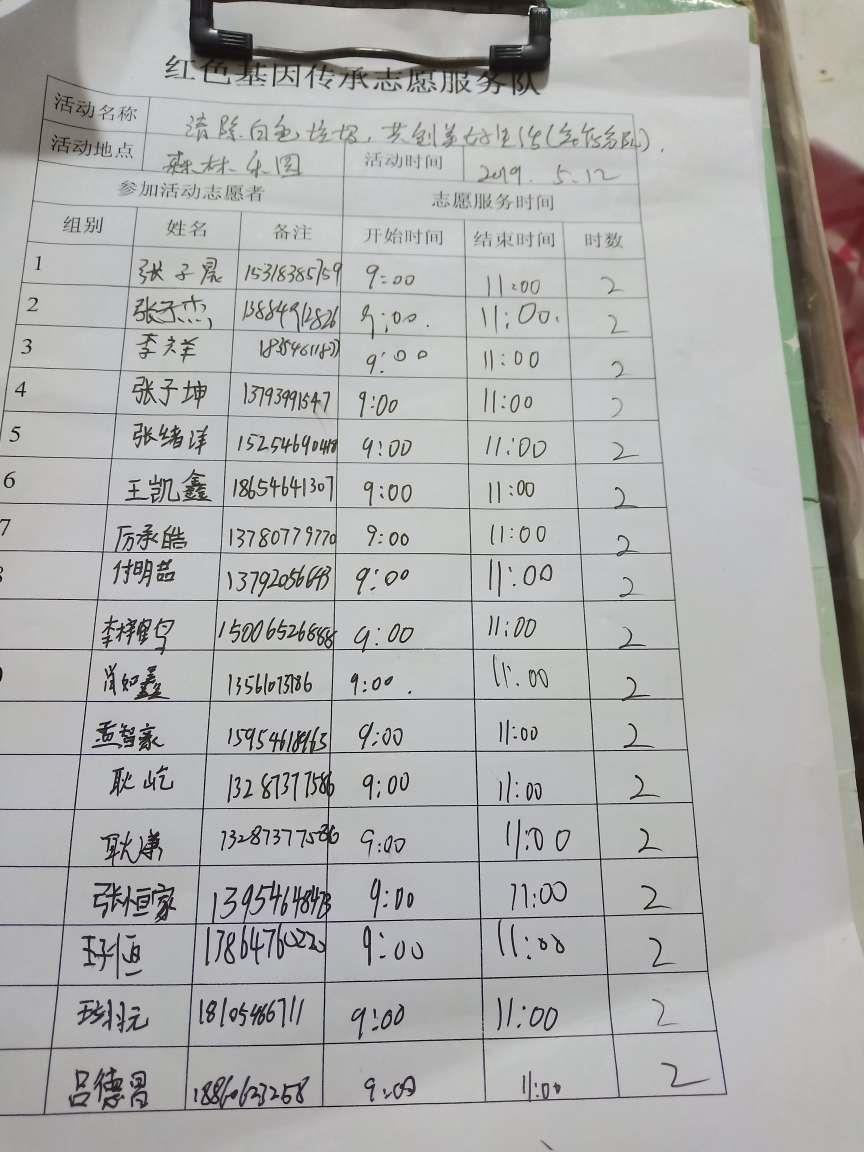 红色基因传承志愿服务队
活动名称 清除白色垃圾,共创美好生活
活动地点 森林乐园 活动时间 2019.5.12
参加活动志愿者 志愿服务时间
组别 姓名 备注 开始时间 结束时间 时数
1 张子晨 15318385759 9:00 11:00 2
2 张子杰 13884912826 9:00. 11:00. 2
3 李祥 9:00 11:00 2
4 张子坤 13793991547 9:00 11:00 2
5 张绪洋 15254690418 9:00 11:00 2
6 王凯鑫 18654641307 9:00 11:00 2
7 厉承皓 13780779770 9:00 11:00 2
付明喆 13792056643 9:00 11:00 2
15006526888 9:00 11:00 2
肖如鑫 9:00. 11:00 2
孟智豪 15954618963 9:00 11:00 2
耿屹 13287377586 9:00 11:00 2
耿谦 13287377586 9:00 11:00 2
张恒家 13954648473 9:00 11:00 2
王子恒 13864760220 9:00 11:00 2
18105466711 9:00 11:00 2
吕德昌 18860623258 9:00 11:00 2